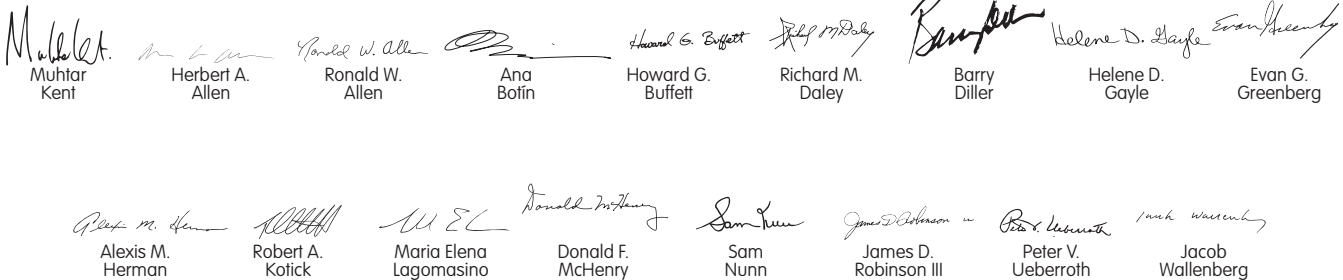 Howard G. Buffett
Helene D. Gayle
Muhtar Kent
Herbert A. Allen
Ronald W. Allen
Ana Botín
Howard G. Buffett
Richard M. Daley
Barry Diller
Helene D. Gayle
Evan G. Greenberg
Alexis M. Herman
Robert A. Kotick
Maria Elena Lagomasino
Donald F. McHenry
Sam Nunn
James D. Robinson III
Peter V. Ueberroth
Jacob Wallenberg